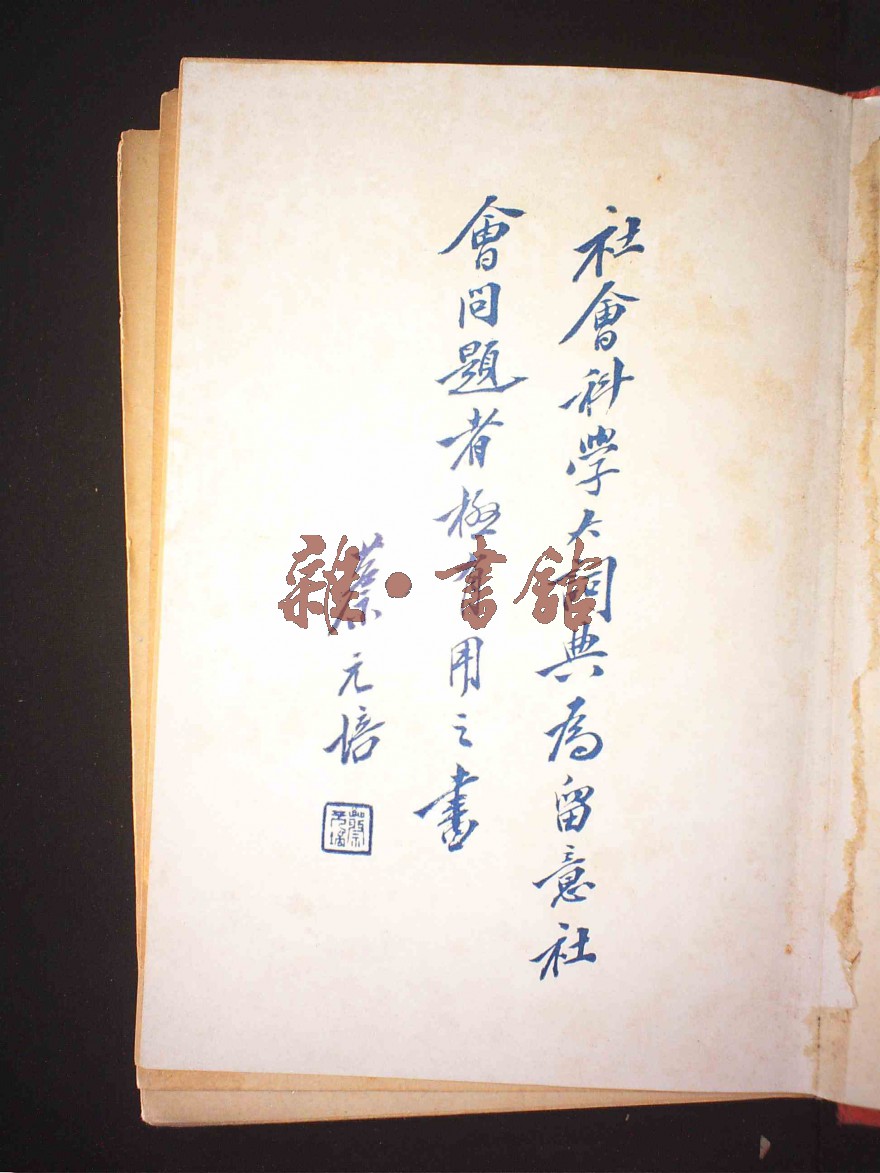 社會科學大詞典為留意社
會問題者極有用之書
蔡元培
雜·書館